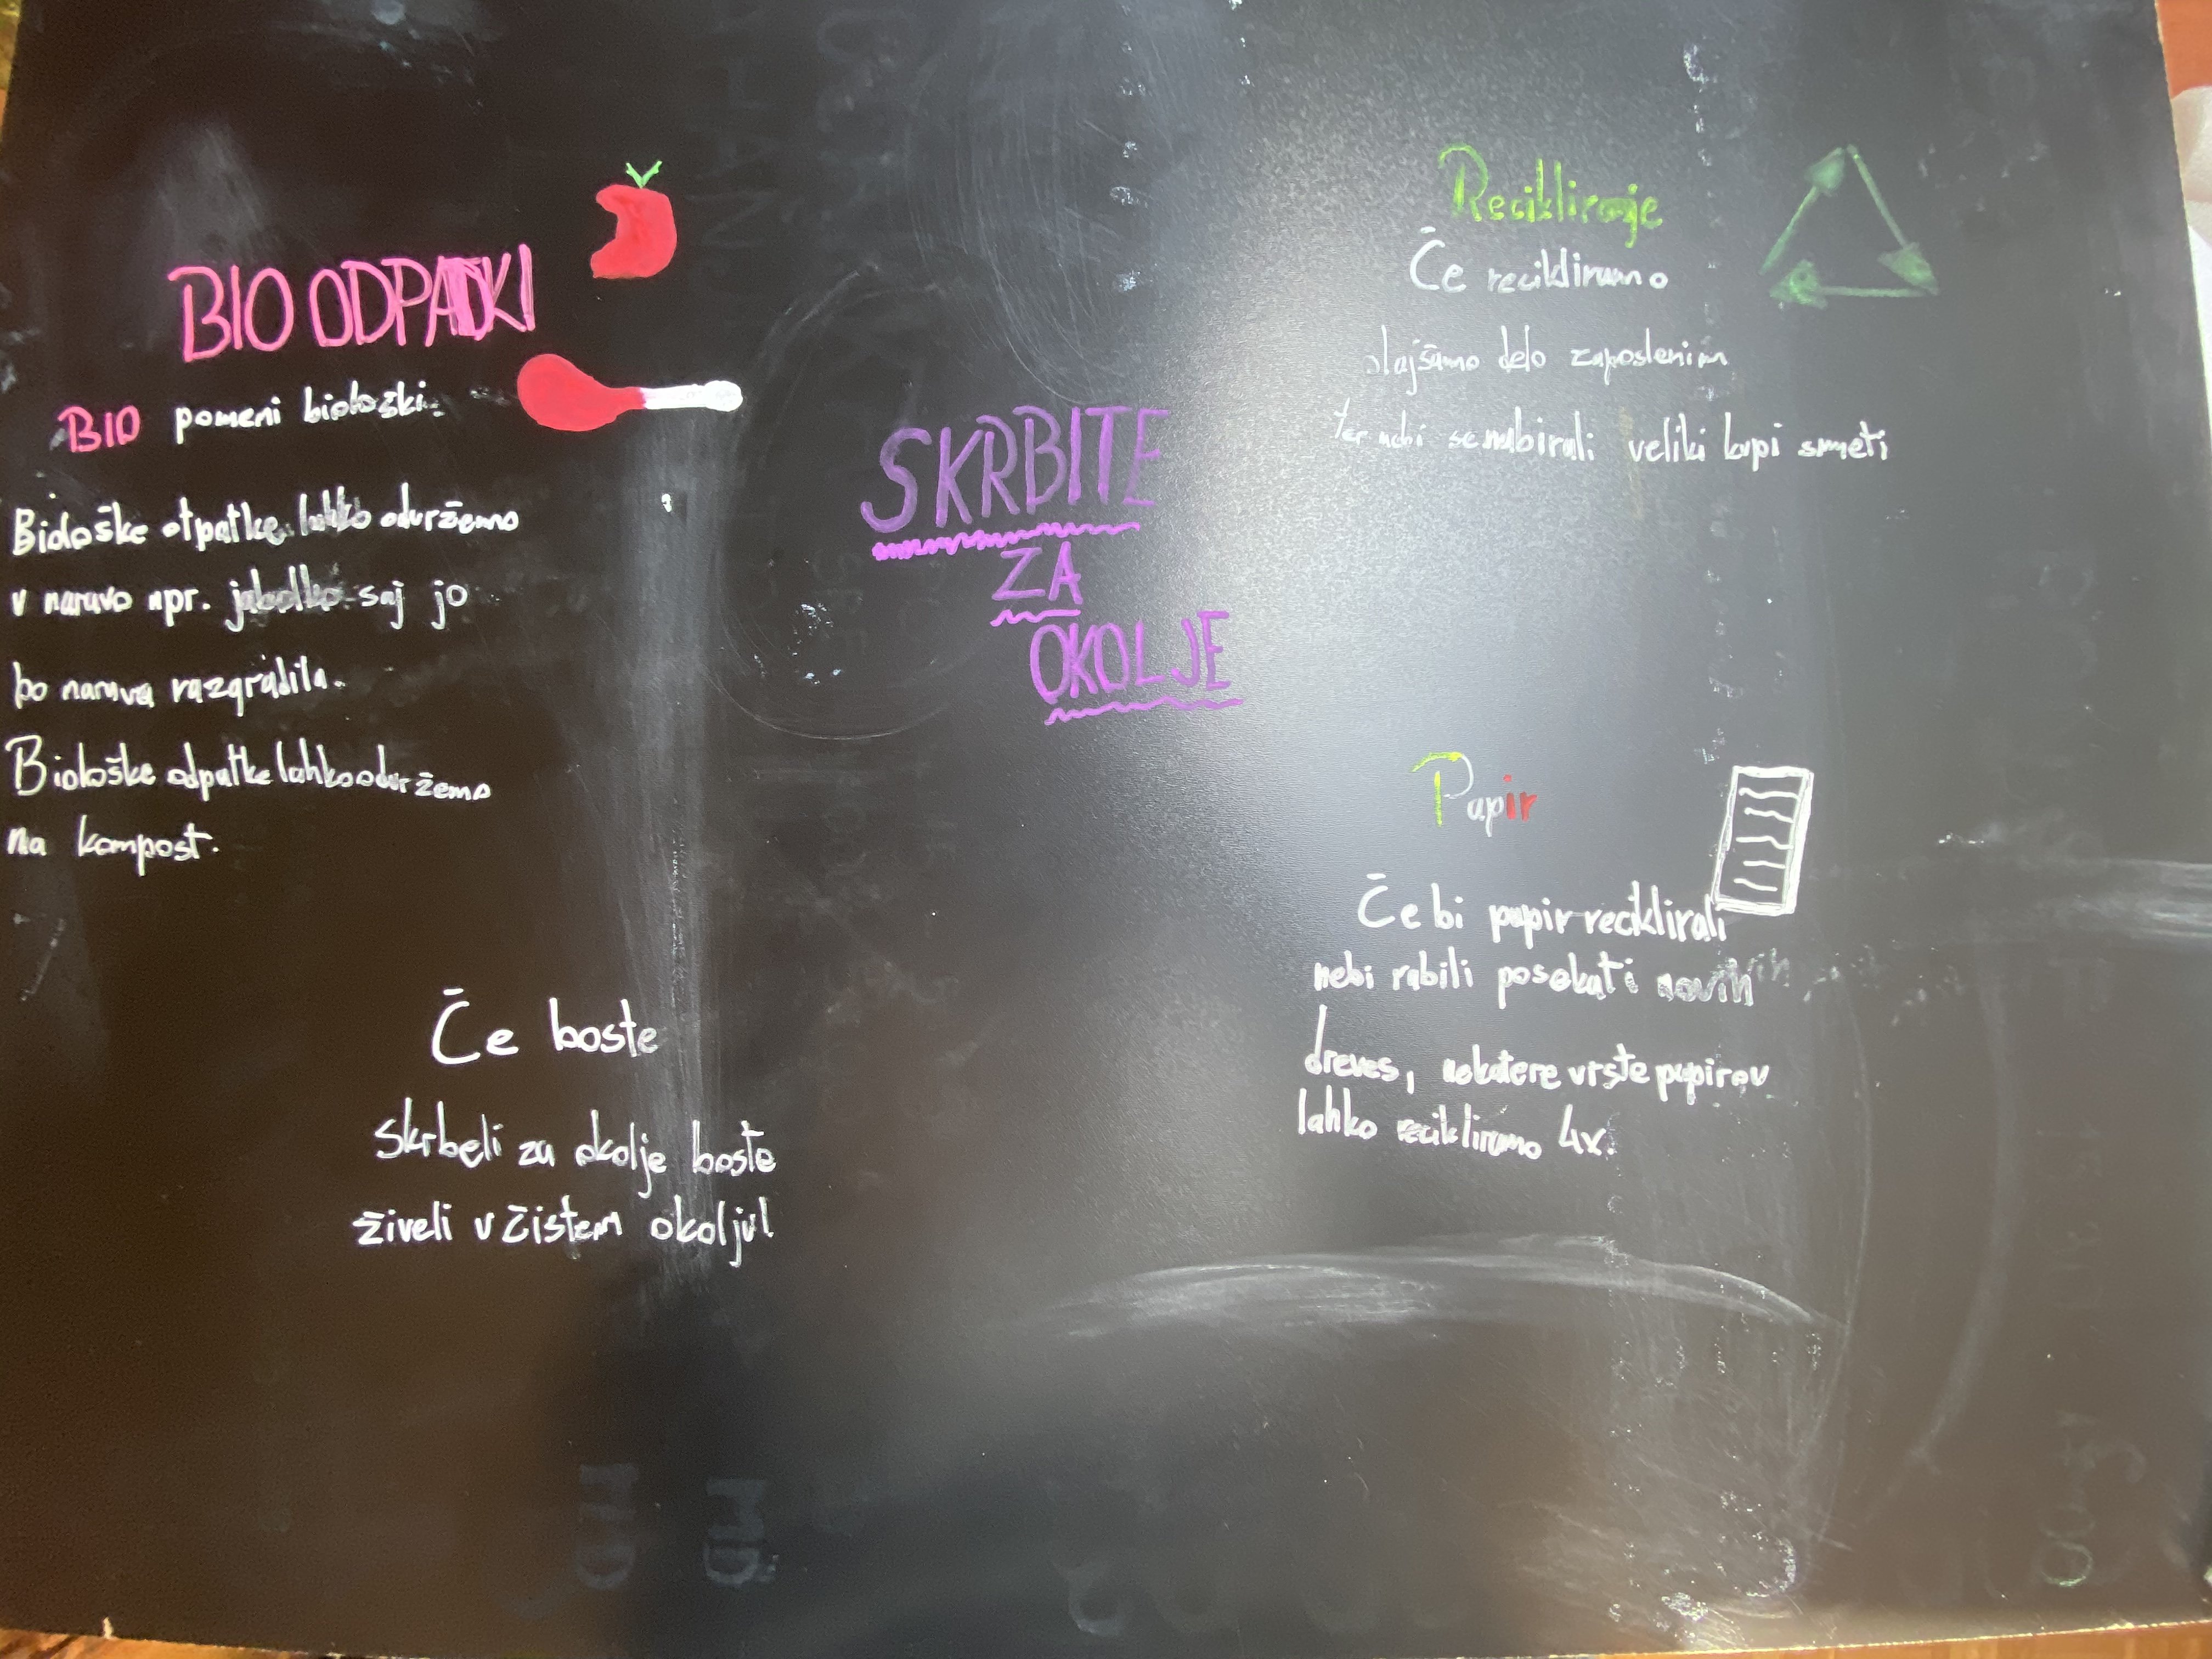 BIO ODPADKI
BIO pomeni biološki.
Biološke otpatke lahko odvržemo
v naravo npr. jabolko saj jo
bo narava razgradila.
Biološke odpatke lahko odvržemo
na kompost.
Če boste
skrbeli za okolje boste
živeli v čistem okolju!
SKRBITE
ZA
OKOLJE
Recikliranje
Če recikliramo
olajšamo delo zaposlenim
ter nebi se nabirali veliki kupi smeti
Papir
Če bi papir reciklirali
nebi rabili posekati novih
dreves, nekatere vrste papirov
lahko recikliramo 4x.